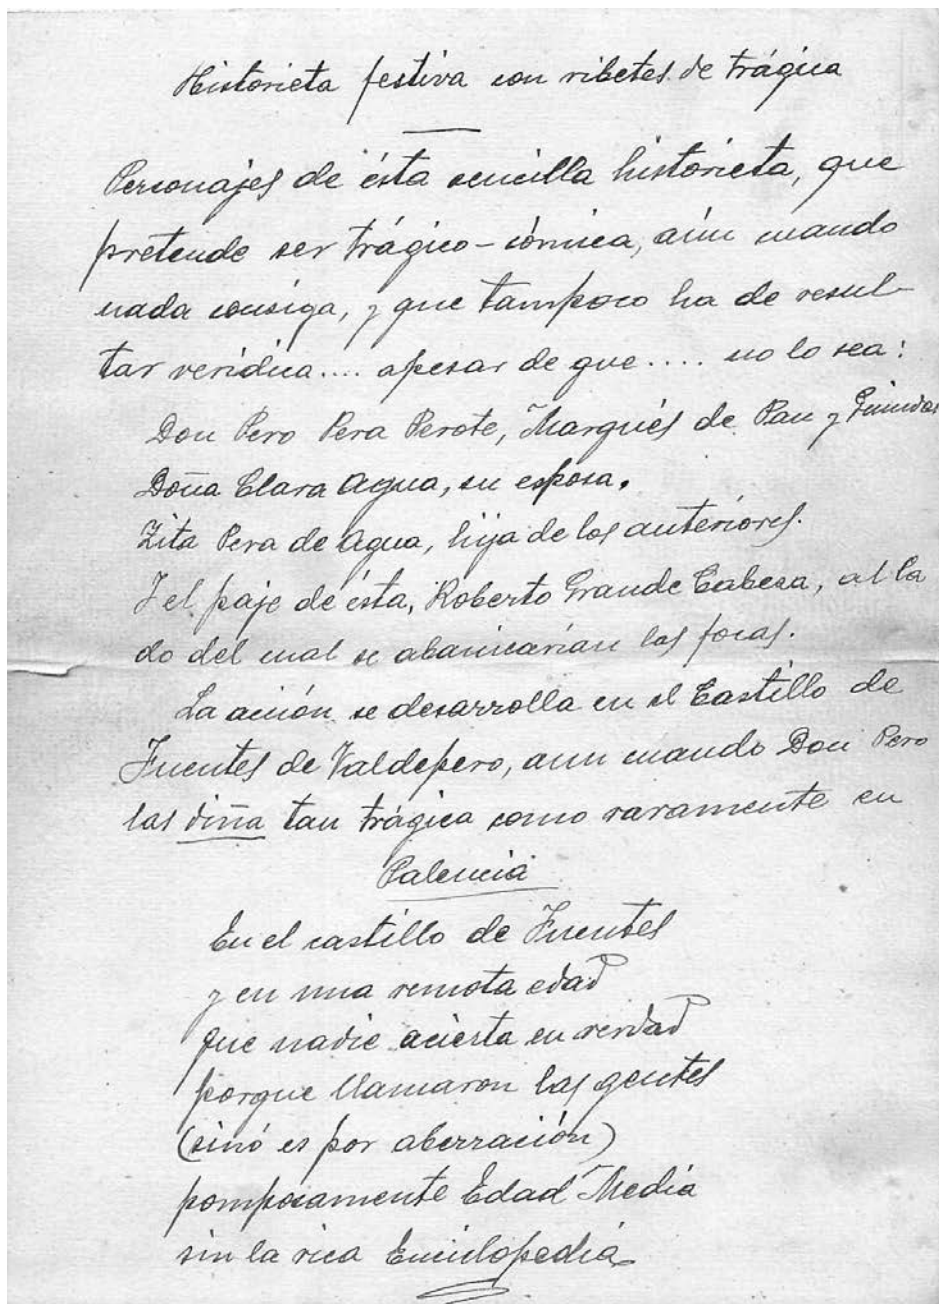 Historieta festiva con ribetes de trágica
Personajes de ésta sencilla historieta, que
pretende ser trágico-cómica, aún cuando
nada consiga, y que tampoco ha de resul-
tar verídica.... apesar de que.... no lo sea:
Don Pero Pera Perote, Marqués de Pan y Guindas
Doña Clara Agua, su esposa.
Zita Pera de Agua, hija de los anteriores.
Y el paje de ésta, Roberto Grande Cabeza, al la
do del cual se abanicarían las focas.
La ación se desarrolla en el Castillo de
Fuentes de Valdepero, aun cuando Don Pero
las diña tan trágica como raramente en
Palencia
En el castillo de Fuentes
y en una remota edad
que nadie acierta en verdad
porque llamaron las gentes
(sinó es por aberración)
pomposamente Edad Media
sin la rica Enciclopedia